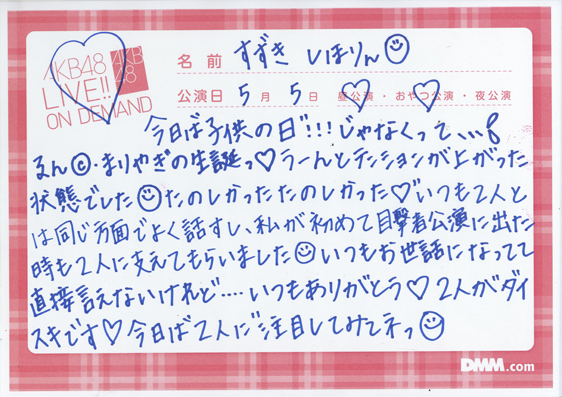 AKB48
LIVE!!
ON DEMAND
AKB
48
名前 すずき しほりん
公演日 5月 5日 昼公演・おやつ公演・夜公演
今日は子供の日!!!じゃなくって、、、
るん©・まりやぎの生誕っ♡うーんとテンションが上がった
状態でした☺たのしかったたのしかった♡いつも2人と
は同じ方面でよく話すし、私が初めて目撃者公演に出た
時も2人に支えてもらいました☺いつもお世話になってて
直接言えないけれど····いつもありがとう♡2人がダイ
スキです♡今日は2人に注目してみてネっ☺
DMM.com